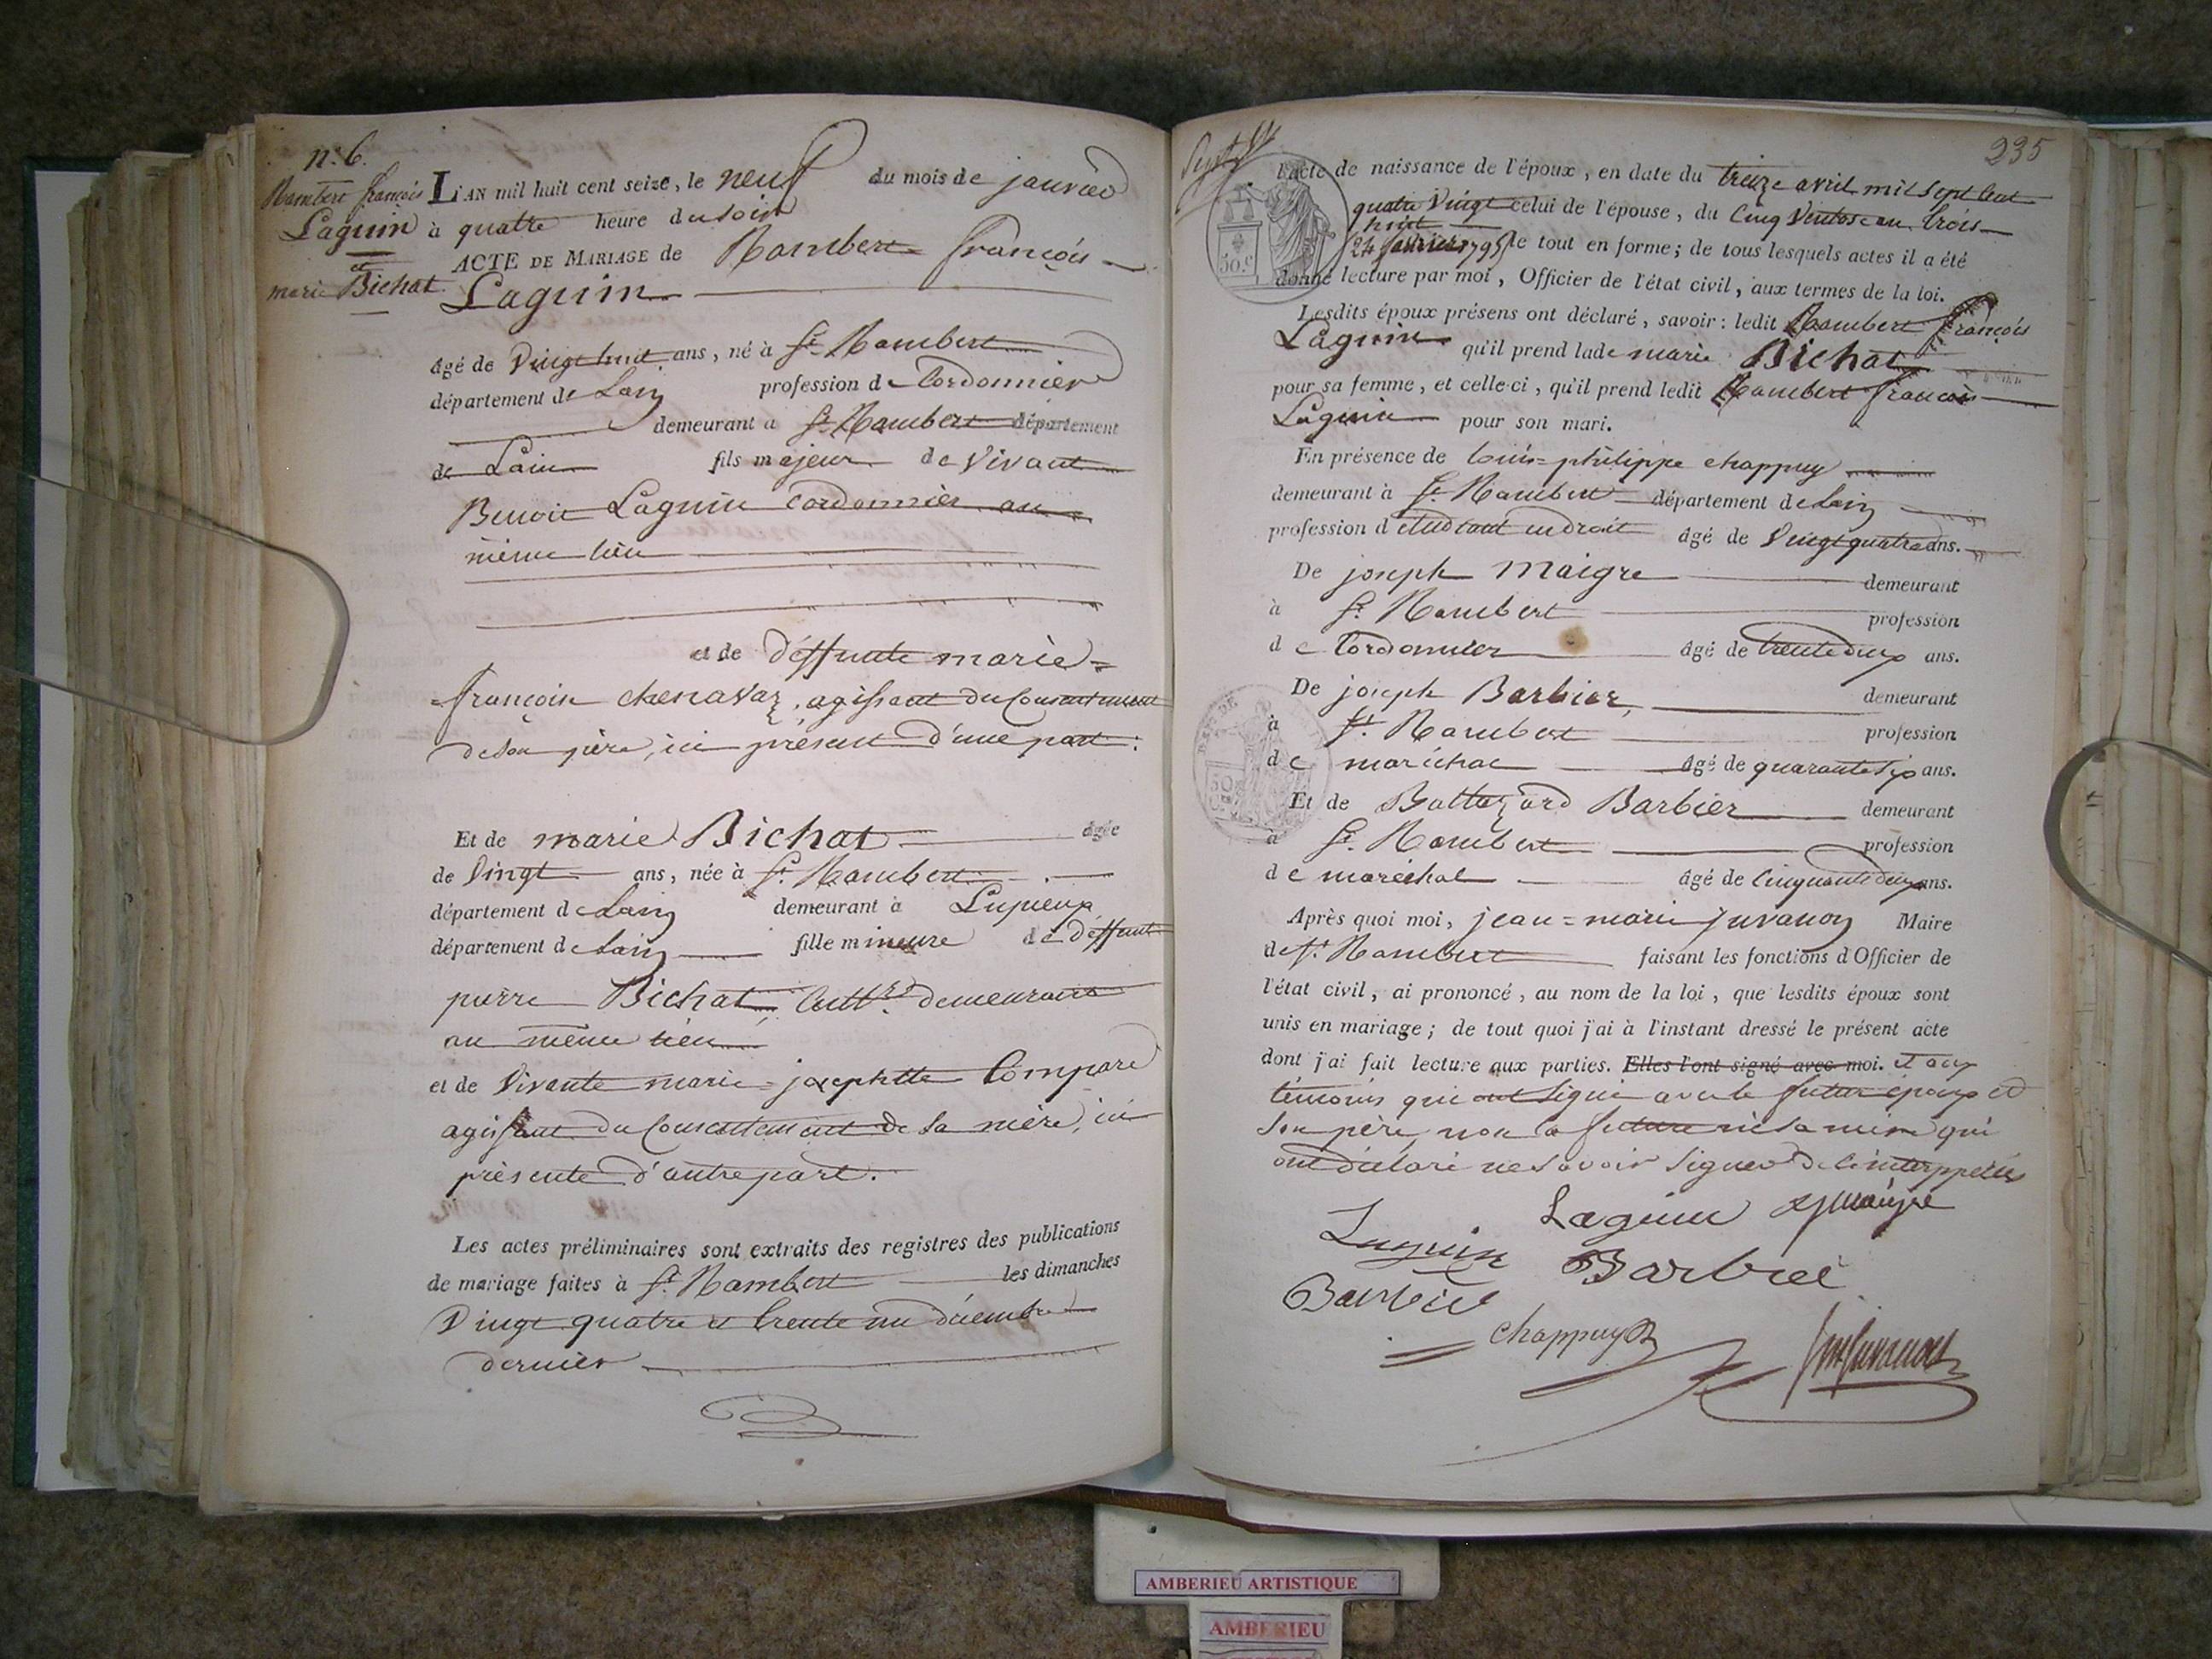 n.° 6.
Rambert françois
Laguin
et
marie Bichat
L'AN mil huit cent seize, le neuf du mois de janvier
à quatre heure du soir
ACTE DE MARIAGE de Rambert françois
Laguin
âgé de Vingt huit ans, né à St. Rambert
département de Lain profession de Cordonnier
demeurant à St. Rambert département
de Lain fils majeur de Vivant
Benoit Laguin Cordonnier au
même lieu
et de déffunte marie=
=françoise chenavaz, agissant du Consentement
de son père, ici présent d'une part:
Et de marie Bichat âgée
de Vingt ans, née à St. Rambert
département de Lain demeurant à Lupieux
département de Lain fille mineure de déffunt
pierre Bichat, Cultr. demeurant
au même lieu
et de Vivante marie=josephette Compare
agissant du Consentement de sa mère, ici
présente d'autre part.
Les actes préliminaires sont extraits des registres des publications
de mariage faites à St. Rambert les dimanches
Vingt quatre et trente un décembre
dernier
235
l'acte de naissance de l'époux, en date du treize avril mil sept Cent
quatre Vingt huit celui de l'épouse, du Cinq Ventose an trois
(24 février 1795) le tout en forme; de tous lesquels actes il a été
donné lecture par moi, Officier de l'état civil, aux termes de la loi.
Lesdits époux présens ont déclaré, savoir: ledit Rambert françois
Laguin qu'il prend lade marie Bichat
pour sa femme, et celle-ci, qu'il prend ledit Rambert françois
Laguin pour son mari.
En présence de louis=philippe chappuy
demeurant à St. Rambert département de Lain
profession d'étudiant en droit âgé de Vingt quatre ans.
De joseph Maigre demeurant
à St. Rambert profession
de Cordonnier âgé de trente deux ans.
De joseph Barbier, demeurant
à St. Rambert profession
de maréchal âgé de quarante six ans.
Et de Baltazard Barbier demeurant
à St. Rambert profession
de maréchal âgé de Cinquante deux ans.
Après quoi moi, jean=marie juvanon Maire
de St. Rambert faisant les fonctions d'Officier de
l'état civil, ai prononcé, au nom de la loi, que lesdits époux sont
unis en mariage; de tout quoi j'ai à l'instant dressé le présent acte
dont j'ai fait lecture aux parties. Elles l'ont signé avec moi. et aux
témoins qui ont signé avec le futur époux et
son père, non la future ni sa mère qui
ont déclaré ne savoir signer de ce interppellés
Laguin Maigre
Laguin Barbier
Barbier
Chappuy
Juvanon
50.c
AMBERIEU ARTISTIQUE
AMBERIEU